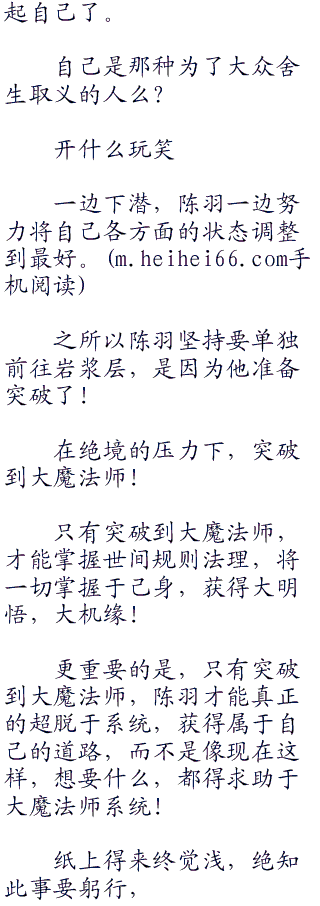 起自己了。
自己是那种为了大众舍
生取义的人么?
开什么玩笑
一边下潜，陈羽一边努
力将自己各方面的状态调整
到最好。(m.heihei66.com手
机阅读)
之所以陈羽坚持要单独
前往岩浆层，是因为他准备
突破了!
在绝境的压力下，突破
到大魔法师!
只有突破到大魔法师，
才能掌握世间规则法理，将
一切掌握于己身，获得大明
悟，大机缘!
更重要的是，只有突破
到大魔法师，陈羽才能真正
的超脱于系统，获得属于自
己的道路，而不是像现在这
样，想要什么，都得求助于
大魔法师系统!
纸上得来终觉浅，绝知
此事要躬行，